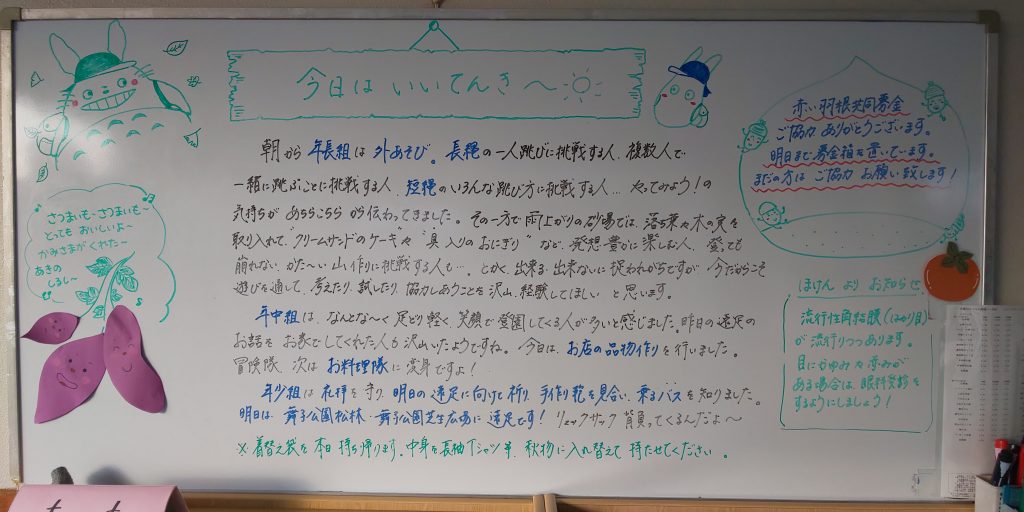 今日は いいてんき〜
朝から 年長組は 外あそび。長縄の一人跳びに挑戦する人、複数人で
一緒に跳ぶことに挑戦する人、短縄のいろんな跳び方に挑戦する人… やってみよう！の
気持ちが あちらこちら から伝わってきました。その一方で雨上がりの砂場では、落ち葉や木の実を
取り入れて“クリームサンドのケーキ”や“具入りのおにぎり”など、発想豊かに楽しむ人、登っても
崩れない かた〜い 山作りに挑戦する人も…。とかく、出来る・出来ないに捉われがちですが、今だからこそ
遊びを通して、考えたり、試したり、協力しあうことを沢山、経験してほしい と思います。
年中組は、なんとな〜く 足どり軽く、笑顔で登園してくる人が多いと感じました。昨日の遠足の
お話を お家でしてくれた人も 沢山いたようですね。今日は、お店の品物作りを行いました。
冒険隊、次は お料理隊に 変身ですよ！
年少組は 礼拝を守り、明日の遠足に向けて祈り、手作り花を見合い、乗るバスを知りました。
明日は、舞子公園松林・舞子公園芝生広場に 遠足です！ リュックサック 背負ってくるんだよ〜
※着替え袋を本日持ち帰ります。中身を長袖Tシャツ等、秋物に入れ替えて 持たせてください。
さつまいも〜さつまいも〜
とっても おいしいよ〜
かみさまが くれた〜
あきの
しるし〜
赤い羽根共同募金
ご協力 ありがとうございます。
明日まで募金箱を置いています。
まだの方は ご協力 お願い致します！
ほけん より お知らせ
流行性角結膜(はやり目)
が 流行りつつあります。
目にかゆみや痛みが
ある場合は、眼科受診を
するようにしましょう！